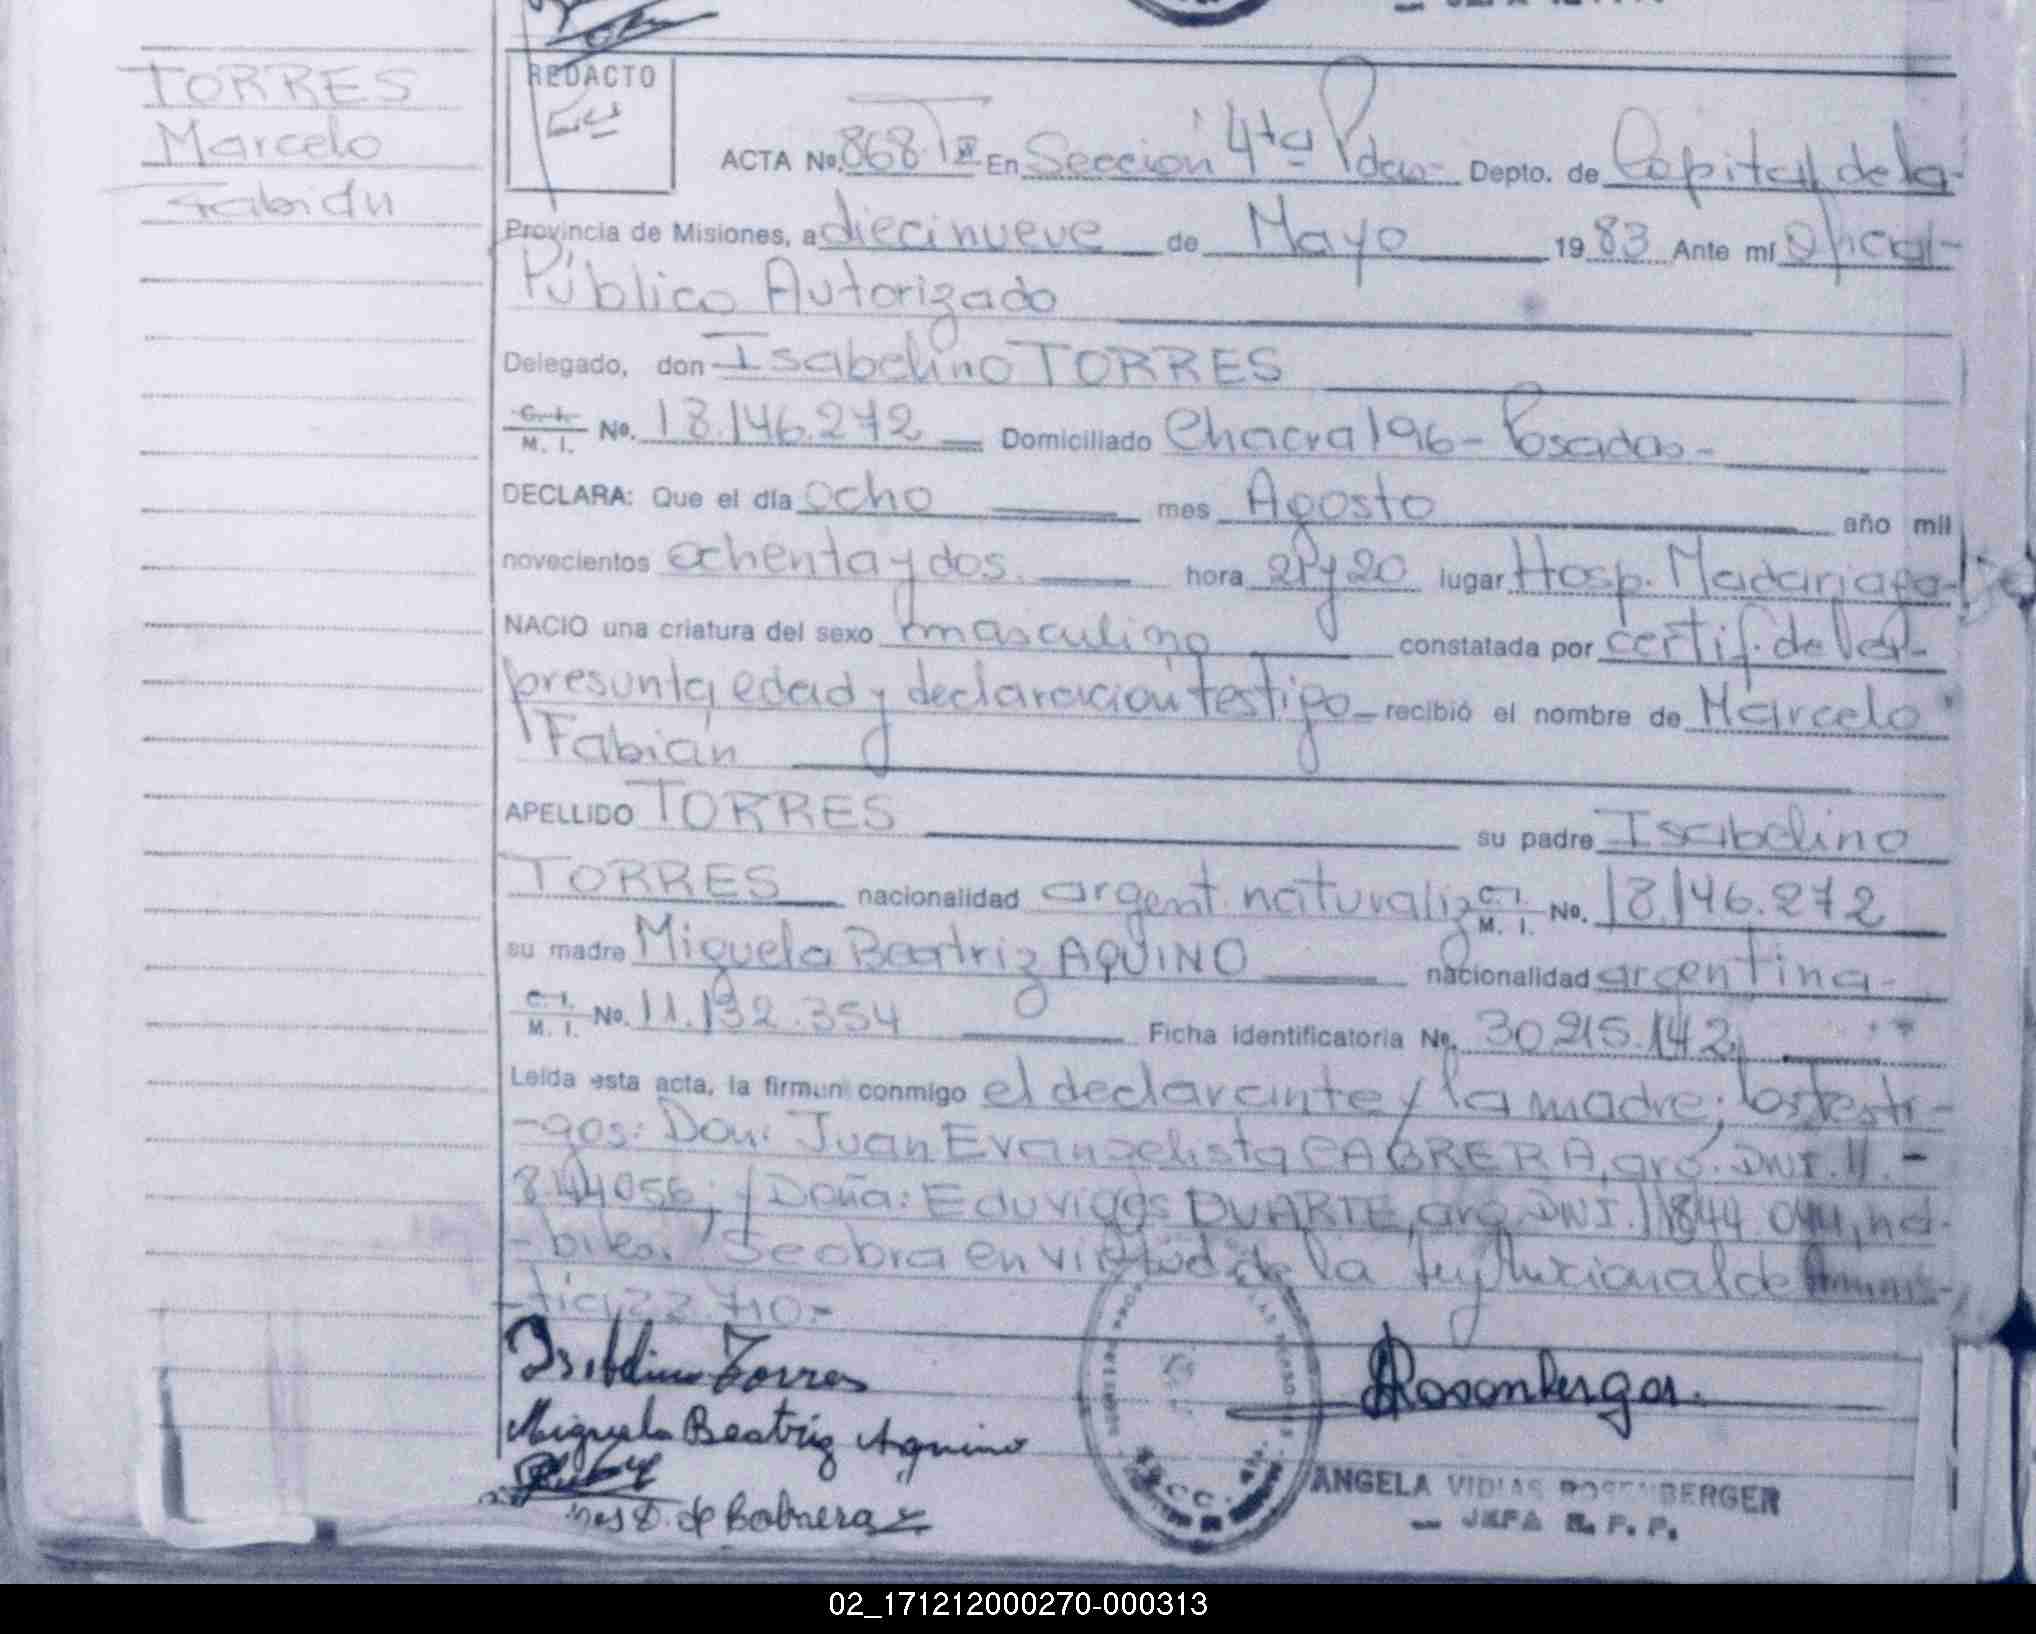 TORRES
Marcelo
Fabián
REDACTO
ACTA No. 868 T En Sección 4ta Pdas- Depto. de Capital de la
Provincia de Misiones, a diecinueve de Mayo 1983 Ante mí Oficial-
Público Autorizado
Delegado, don Isabelino TORRES
C. I. M. I. No. 18.146.272 Domiciliado Chacra 196 - Posadas -
DECLARA: Que el día ocho mes Agosto año mil
novecientos ochenta y dos hora 21 y 20 lugar Hosp. Madariaga-
NACIO una criatura del sexo masculino constatada por certif. de
presunta edad y declaración testigo recibió el nombre de Marcelo
Fabián
APELLIDO TORRES su padre Isabelino
TORRES nacionalidad argent. naturaliz C. I. M. I. No. 18.146.272
su madre Miguela Beatriz AQUINO nacionalidad argentina-
C. I. M. I. No. 11.132.354 Ficha identificatoria No. 30.215.142
Leída esta acta, la firman conmigo el declarante y la madre; los testi-
-gos: Don: Juan Evangelista CABRERA, arg. DNI. 11.-
844056; y Doña: Eduviges DUARTE, arg. DNI. 11844 044, há-
-biles. Se obra en virtud de la Ley Nacional de Amnis-
-tia, 22.710.-
Isabelino Torres
Rosenberger
Miguela Beatriz Aquino
D. de Cabrera
ANGELA VIDIAS ROSENBERGER
JEFA R. P. P.
02_171212000270-000313